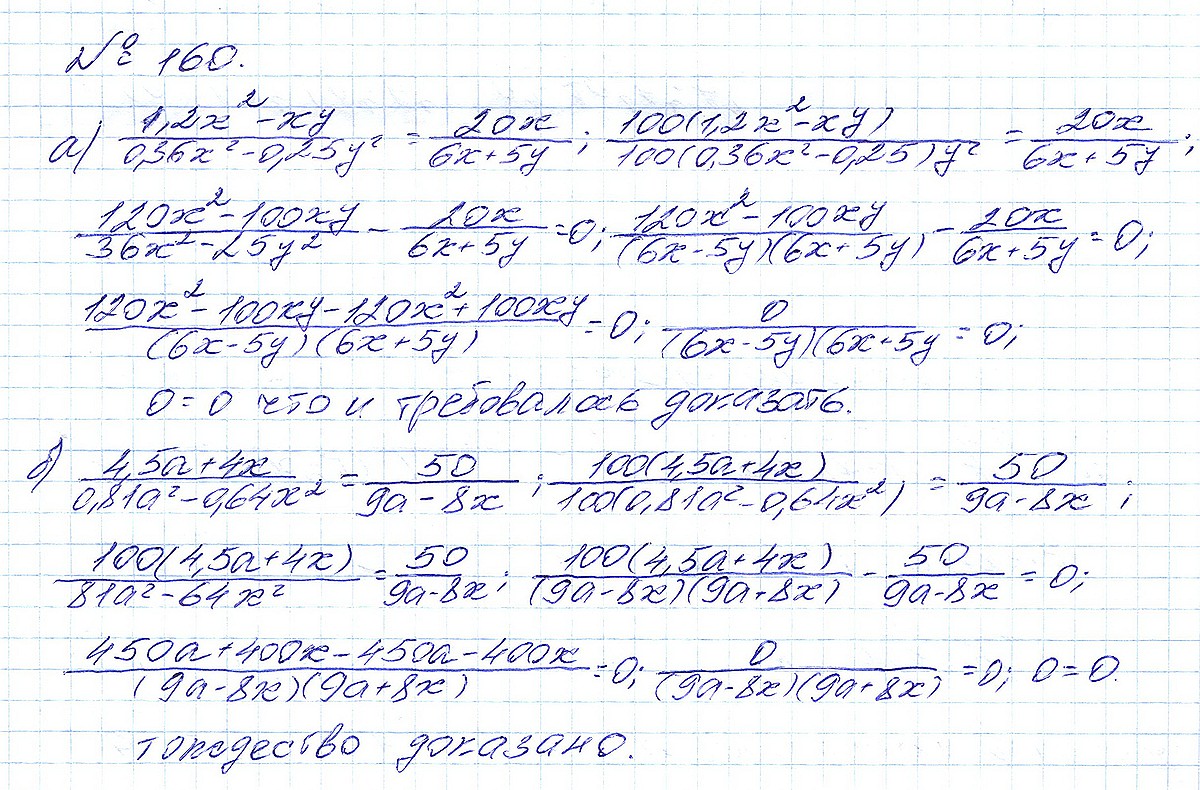 № 160.
а) (1,2x² - xy)/(0,36x² - 0,25y²) = 20x/(6x + 5y); 100(1,2x² - xy)/(100(0,36x² - 0,25)y²) = 20x/(6x + 5y);
(120x² - 100xy)/(36x² - 25y²) - 20x/(6x + 5y) = 0; (120x² - 100xy)/((6x - 5y)(6x + 5y)) - 20x/(6x + 5y) = 0;
(120x² - 100xy - 120x² + 100xy)/((6x - 5y)(6x + 5y)) = 0; 0/((6x - 5y)(6x + 5y) = 0;
0 = 0 что и требовалось доказать.
б) (4,5a + 4x)/(0,81a² - 0,64x²) = 50/(9a - 8x); 100(4,5a + 4x)/(100(0,81a² - 0,64x²)) = 50/(9a - 8x);
100(4,5a + 4x)/(81a² - 64x²) = 50/(9a - 8x); 100(4,5a + 4x)/((9a - 8x)(9a + 8x)) - 50/(9a - 8x) = 0;
(450a + 400x - 450a - 400x)/((9a - 8x)(9a + 8x)) = 0; 0/((9a - 8x)(9a + 8x)) = 0; 0 = 0.
тождество доказано.